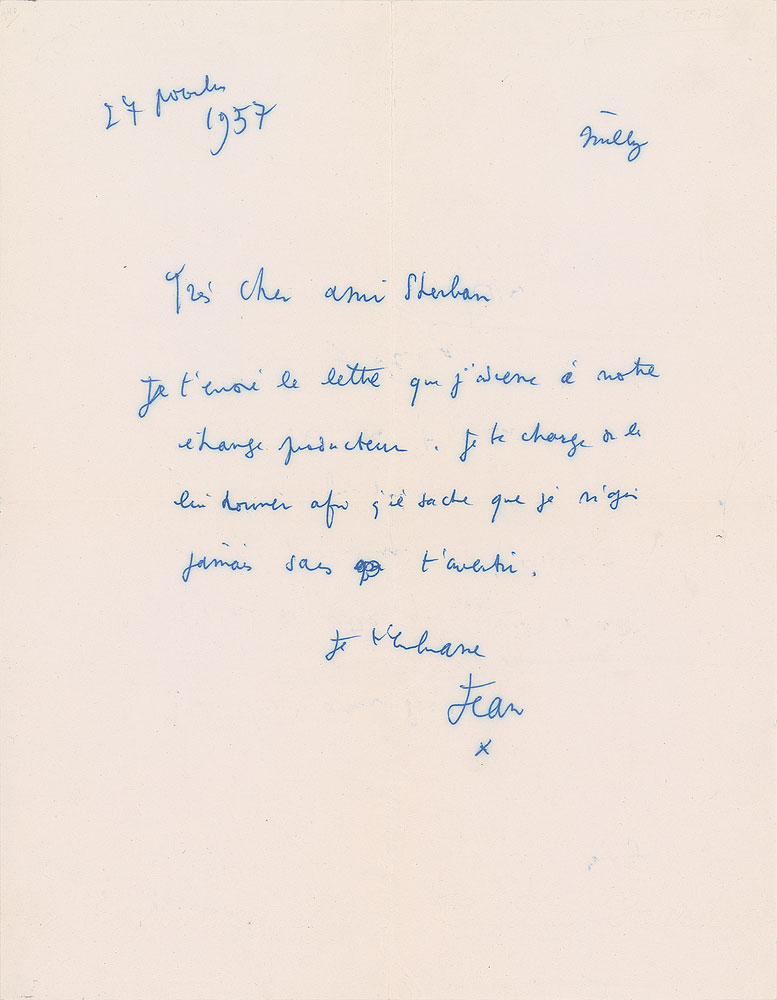 27 novembre
1957
Milly
Très cher ami Sherban
Je t'envoie la lettre que j'adresse à notre
étrange producteur. Je te charge de la
lui donner afin qu'il sache que je n'agis
jamais sans t'avertir.
Je t'embrasse
Jean
x